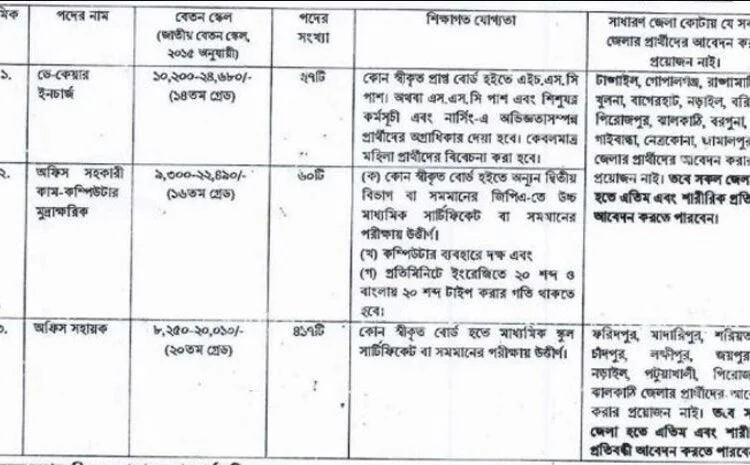 মিক
পদের নাম
বেতন স্কেল
(জাতীয় বেতন স্কেল,
২০১৫ অনুযায়ী)
পদের
সংখ্যা
শিক্ষাগত যোগ্যতা
সাধারণ জেলা কোটায় যে সব
জেলার প্রার্থীদের আবেদন কর
প্রয়োজন নাই।
১.
ডে-কেয়ার
ইনচার্জ
১০,২০০-২৪,৬৮০/-
(১৪তম গ্রেড)
২৭টি
কোন স্বীকৃত প্রাপ্ত বোর্ড হইতে এইচ.এস.সি
পাশ। অথবা এস.এস.সি পাশ এবং শিশুযত্ন
কর্মসূচী এবং নার্সিং-এ অভিজ্ঞতাসম্পন্ন
প্রার্থীদের অগ্রাধিকার দেয়া হবে। কেবলমাত্র
মহিলা প্রার্থীদের বিবেচনা করা হবে।
টাঙ্গাইল, গোপালগঞ্জ, রাঙ্গামাটি
খুলনা, বাগেরহাট, নড়াইল, বরি
পিরোজপুর, ঝালকাঠি, বরগুনা,
গাইবান্ধা, নেত্রকোনা, জামালপুর
জেলার প্রার্থীদের আবেদন করার
প্রয়োজন নাই। তবে সকল জেলা
হতে এতিম এবং শারীরিক প্রতি
আবেদন করতে পারবেন।
২.
অফিস সহকারী
কাম-কম্পিউটার
মুদ্রাক্ষরিক
৯,৩০০-২২,৪৯০/-
(১৬তম গ্রেড)
৬০টি
(ক) কোন স্বীকৃত বোর্ড হইতে অন্যুন দ্বিতীয়
বিভাগ বা সমমানের জিপিএ-তে উচ্চ
মাধ্যমিক সার্টিফিকেট বা সমমানের
পরীক্ষায় উত্তীর্ণ।
(খ) কম্পিউটার ব্যবহারে দক্ষ এবং
(গ) প্রতিমিনিটে ইংরেজিতে ২০ শব্দ ও
বাংলায় ২০ শব্দ টাইপ করার গতি থাকতে
হবে।
৩.
অফিস সহায়ক
৮,২৫০-২০,০১০/-
(২০তম গ্রেড)
৪১৭টি
কোন স্বীকৃত বোর্ড হতে মাধ্যমিক স্কুল
সার্টিফিকেট বা সমমানের পরীক্ষায় উত্তীর্ণ।
ফরিদপুর, মাদারিপুর, শরিয়ত
চাঁদপুর, লক্ষীপুর, জয়পুর
নড়াইল, পটুয়াখালী, পিরোজ
ঝালকাঠি জেলার প্রার্থীদের আবে
করার প্রয়োজন নাই। তবে স
জেলা হতে এতিম এবং শারী
প্রতিবন্ধী আবেদন করতে পারবে